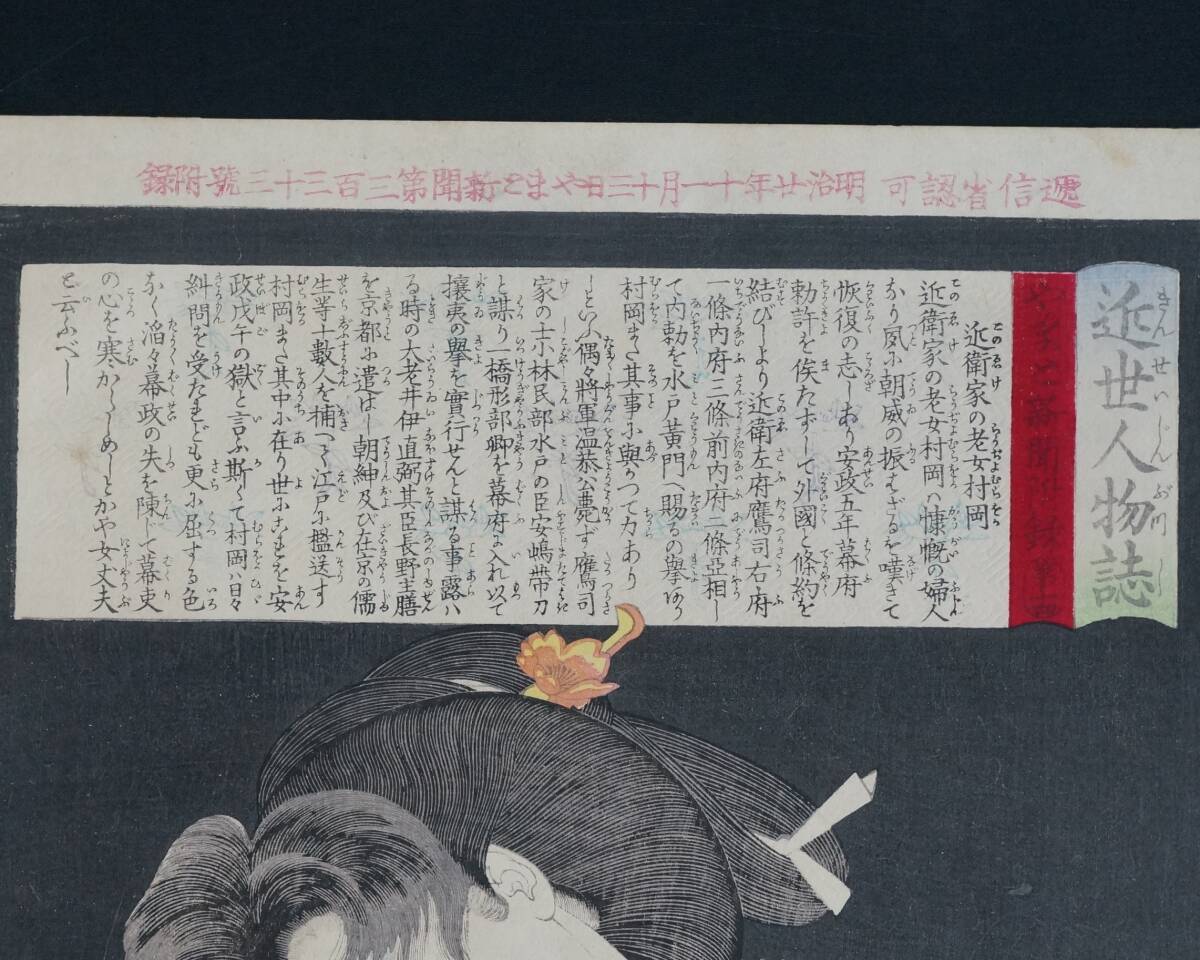 逓信省認可 明治廿年十一月十三日やまと新聞第三百三十三號附録
近世人物誌
やまと新聞附録 第十四
近衛家の老女村岡
近衛家の老女村岡ハ慷慨の婦人
なり夙に朝威の振ハざるを嘆きて
恢復の志しあり安政五年幕府
勅許を俟たずして外國と條約を
結びしより近衛左府鷹司右府
一條内府三條前内府二條亞相し
て内勅を水戸黄門へ賜るの擧あり
村岡また其事に與かつて力あり
しといふ偶々將軍温恭公薨ず鷹司
家の士小林民部水戸の臣安嶋帯刀
と謀り一橋形部卿を幕府に入れ以て
攘夷の擧を實行せんと謀る事露ハ
る時の大老井伊直弼其臣長野主膳
を京都に遣はし朝紳及び在京の儒
生等十數人を捕へて江戸に檻送す
村岡また其中に在り世にこれを安
政戊午の獄と言ふ斯くて村岡ハ日々
糾問を受たれども更に屈する色
なく滔々幕政の失を陳じて幕吏
の心を寒からしめしとかや女丈夫
と云ふべし